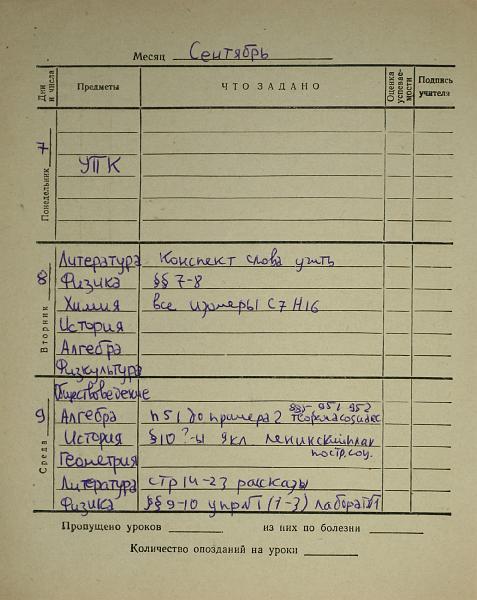 Месяц Сентябрь
Дни и числа Предметы ЧТО ЗАДАНО Оценка успевае- мости Подпись учителя
Понедельник 7
УПК
Вторник 8
Литература Конспект слова учить
Физика §§ 7-8
Химия все изомеры C7H16
История
Алгебра
Физкультура
Среда 9
Обществоведение
Алгебра п 51 до примера 2 951 952
История § 10 ?-ы 9 кл. ленинский план
постр. соц.
Геометрия
Литература стр 14-23 рассказы
Физика §§ 9-10 упр №1 (1-3) лабора №1
Пропущено уроков из них по болезни
Количество опозданий на уроки